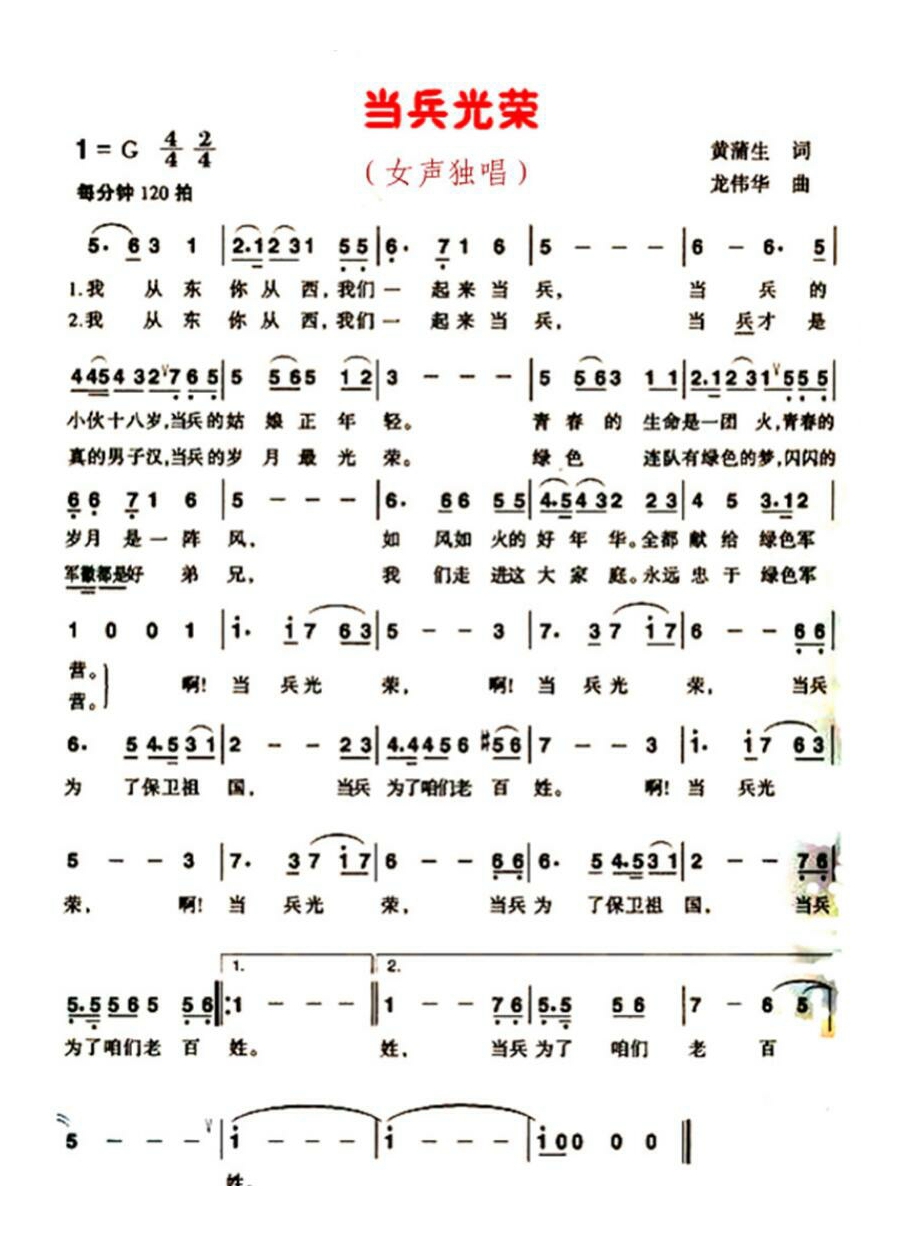 当兵光荣
1=G 4/4 2/4
(女声独唱)
黄蒲生 词
每分钟120拍
龙伟华 曲
5· 6 3 1 | 2·1 2 3 1 5 5 | 6· 7 1 6 | 5 - - - | 6 - 6· 5 |
1.我 从 东 你 从 西,我们一 起来当 兵, 当 兵的
2.我 从 东 你 从 西,我们一 起来当 兵, 当 兵才是
4 4 5 4 3 2 7 6 5 | 5 5 6 5 1 2 | 3 - - - | 5 5 6 3 1 1 | 2·1 2 3 1 5 5 5 |
小伙十八岁,当兵的姑 娘正年 轻。 青春的 生命是一团 火,青春的
真的男子汉,当兵的岁 月最光 荣。 绿色 连队有绿色的梦,闪闪的
6 6 7 1 6 | 5 - - - | 6· 6 6 5 5 | 4·5 4 3 2 2 3 | 4 5 3·1 2 |
岁月是一阵 风, 如 风如火的好年 华。全都献给绿色军
军徽都是好弟 兄, 我 们走进这大家 庭。永远忠于绿色军
1 0 0 1 | i· i 7 6 3 | 5 - - 3 | 7· 3 7 i 7 | 6 - - 6 6 |
营。 啊!当 兵光 荣, 啊!当 兵光 荣, 当兵
营。
6· 5 4·5 3 1 | 2 - - 2 3 | 4·4 4 5 6 5 6 | 7 - - 3 | i· i 7 6 3 |
为 了保卫祖 国, 当兵 为了咱们老 百 姓。 啊!当 兵光
5 - - 3 | 7· 3 7 i 7 | 6 - - 6 6 | 6· 5 4·5 3 1 | 2 - - 7 6 |
荣, 啊!当 兵光 荣, 当兵为 了保卫祖 国, 当兵
1. 2.
5·5 5 6 5 5 6 :| 1 - - - || 1 - - 7 6 | 5·5 5 6 | 7 - 6 5 |
为了咱们老 百 姓。 姓, 当兵为了 咱们 老 百
5 - - - | i - - - | i - - - | i 0 0 0 0 0 ||
姓。